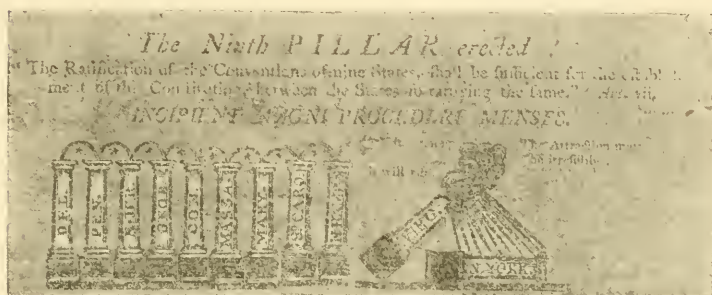 The Ninth PILLAR erected !
"The Ratification of the Conventions of nine States, shall be sufficient for the establish-
ment of this Constitution, between the States so ratifying the same." Art. vii.
INCIPIENT MAGNI PROCEDERE MENSES.
The Attraction must
be irresistible
it will
DEL. PEN. GEOR. CON. MASSA. MARY. S.CARO.
N.YORK